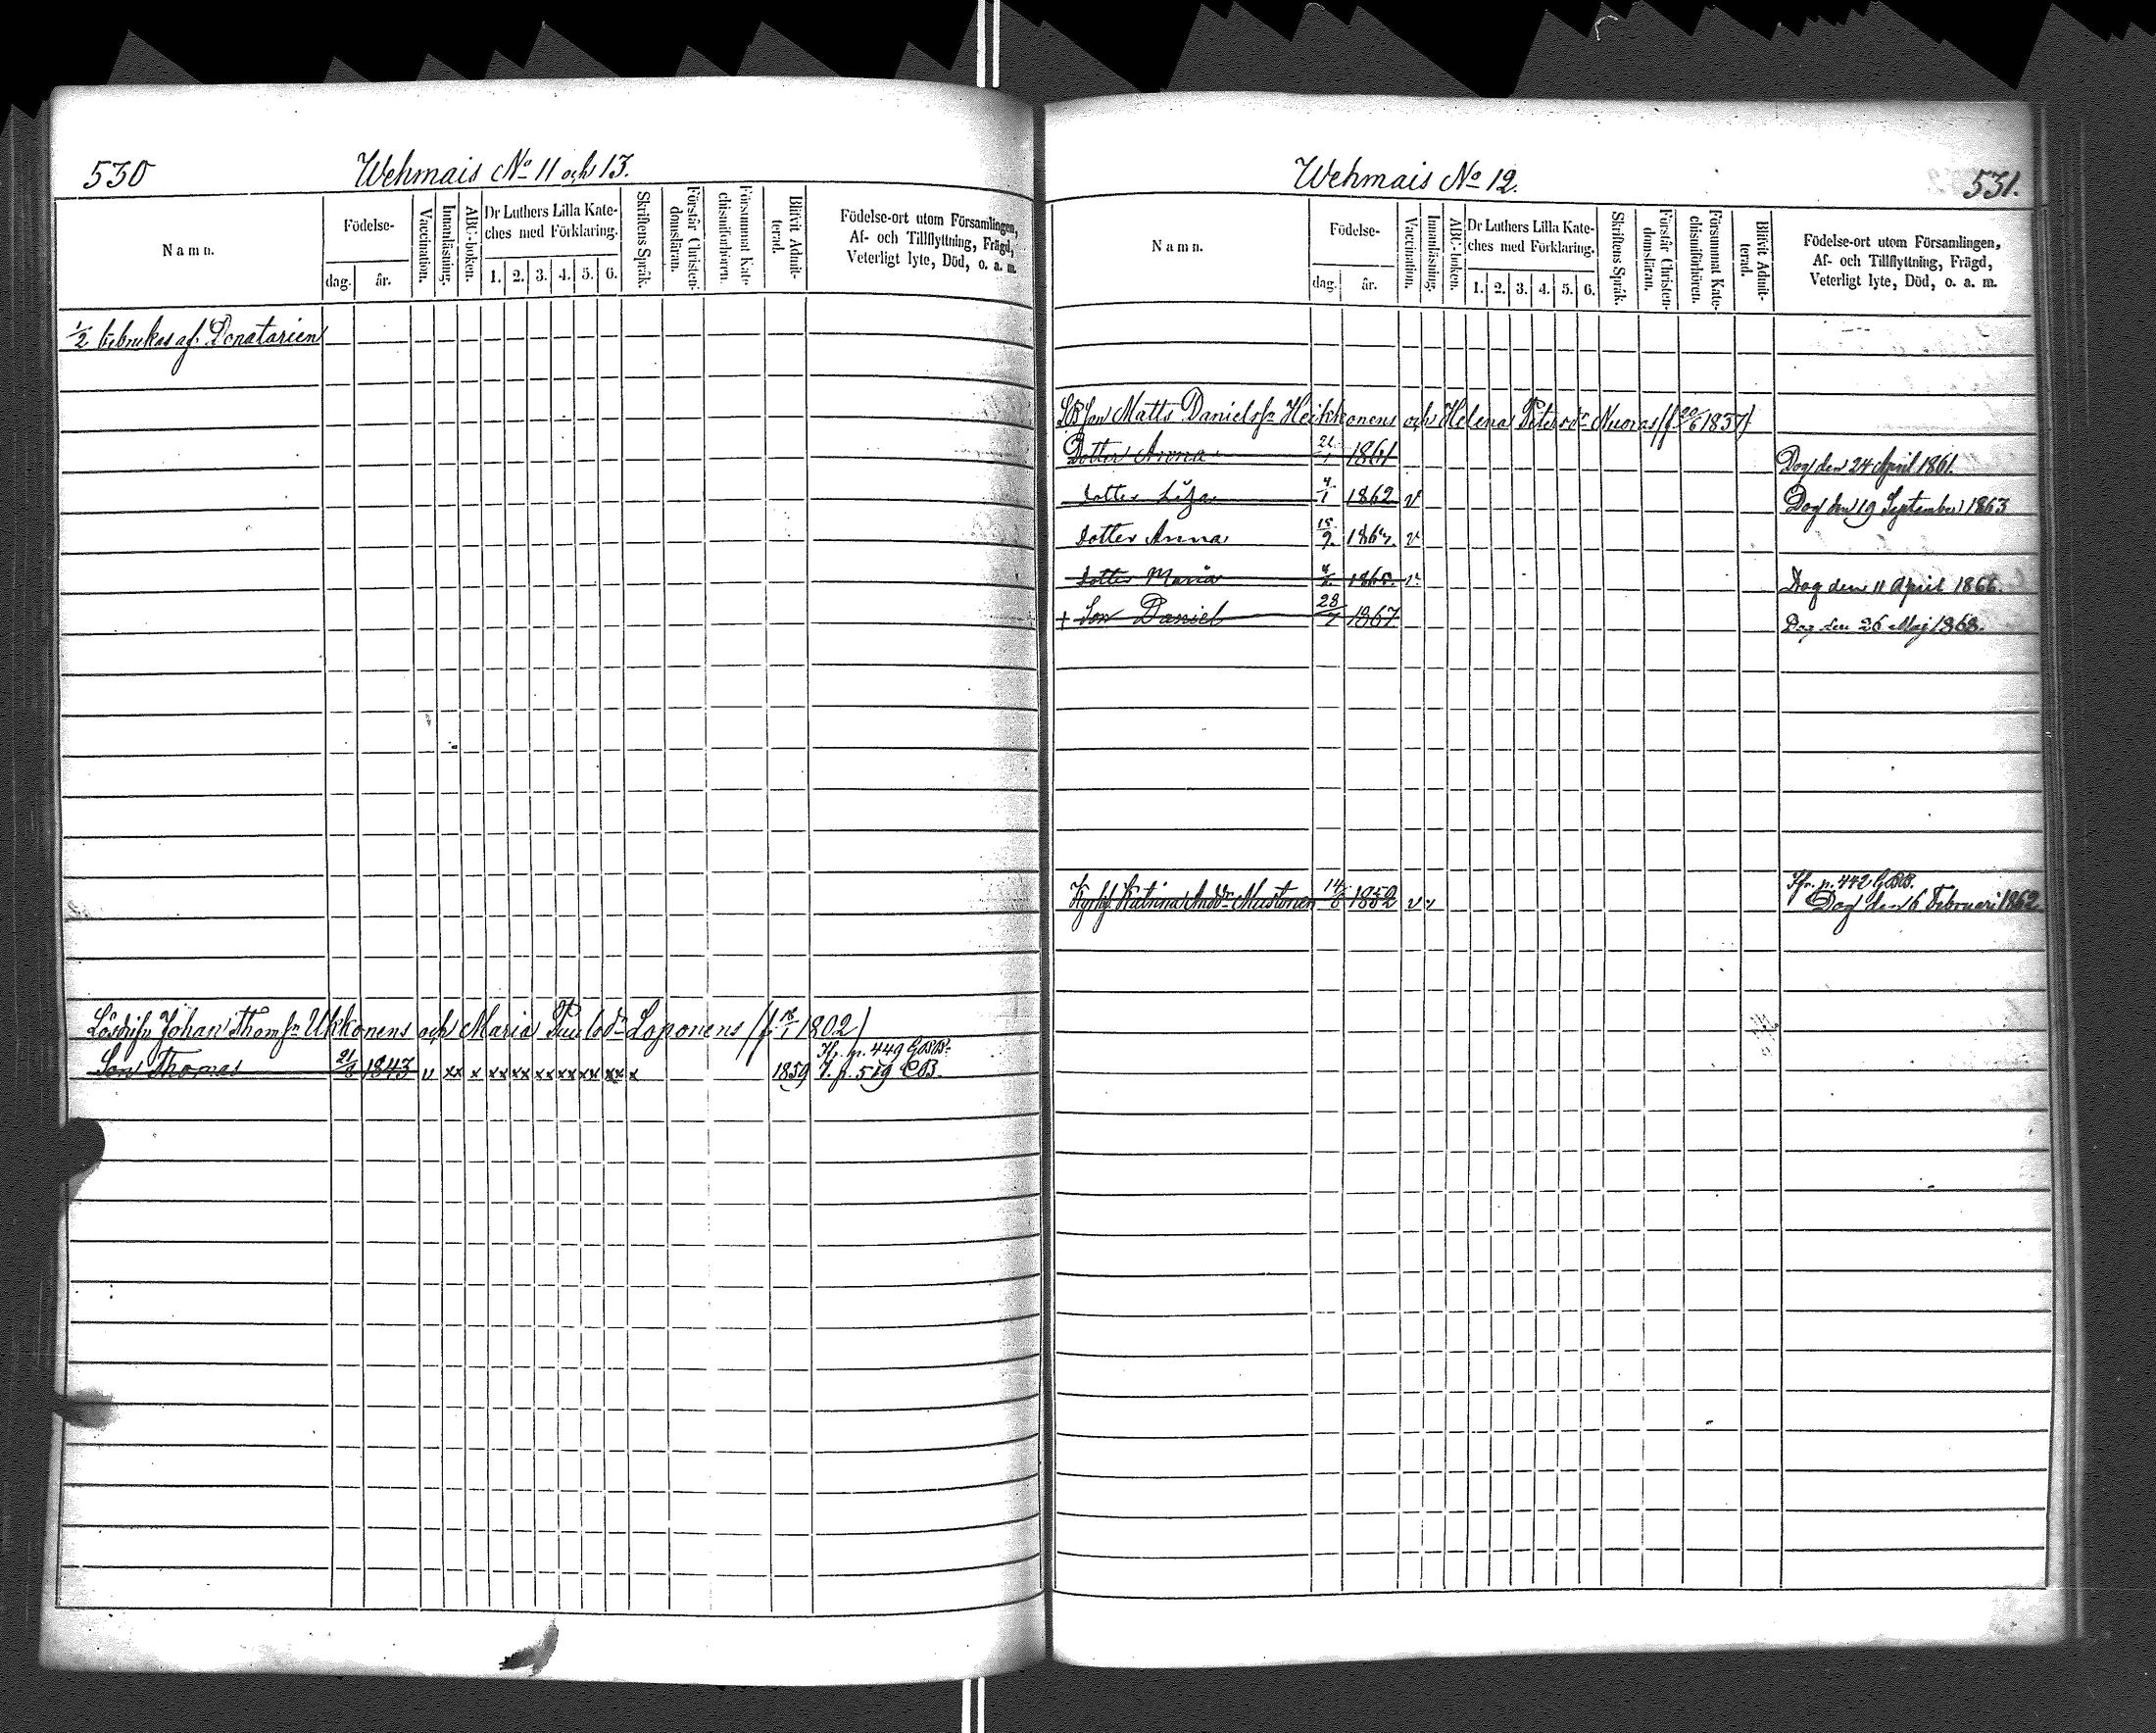 530
Wehmais No 11 och 13.
Namn.
Födelse-
dag.
år.
Vaccination.
Innanläsning.
ABC-boken.
Dr Luthers Lilla Kate-
ches med Förklaring.
1. 2. 3. 4. 5. 6.
Skriftens Språk.
Förstår Christen-
domsläran.
Försummat Kate-
chismiförhören.
Blifvit Admit-
terad.
Födelse-ort utom Församlingen,
Af- och Tillflyttning, Frägd,
Veterligt lyte, Död, o. a. m.
1/2 bebrukas af Donatarien
Johan Thomsn Ukkonens och Maria Paulsdr Loponens (f. 1802)
Ifr. p. 449 GBB.
Son Thomas 21/8 1843 v xx x xx xx xx xx xx xx x 1859 T. p. 519 CB.
Wehmais No 12.
531.
Namn.
Födelse-
dag.
år.
Vaccination.
Innanläsning.
ABC-boken.
Dr Luthers Lilla Kate-
ches med Förklaring.
1. 2. 3. 4. 5. 6.
Skriftens Språk.
Förstår Christen-
domsläran.
Försummat Kate-
chismiförhören.
Blifvit Admit-
terad.
Födelse-ort utom Församlingen,
Af- och Tillflyttning, Frägd,
Veterligt lyte, Död, o. a. m.
Matts Danielssn Heikkonens och Helena Petersdr Nuoras (f. 20/6 1837)
Dotter Anna 1861 Dog den 24 April 1861.
dotter Lisa 4/1 1862 v Dog den 19 September 1863
dotter Anna 15/9. v
dotter Maria 1865. v. Dog den 11 April 1866.
+ Son Daniel 28/7 1867 Dog den 26 Maj 1868.
Ifr. p. 442 GBB.
Katrina Andsdr Mustonen 14/6 1852 v v Dog den 6 Februari 1862